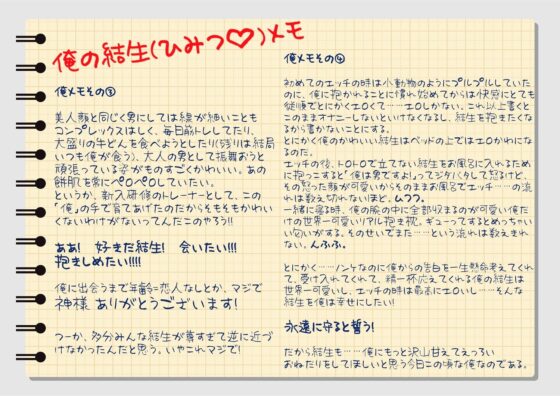 俺の結生(ひみつ♡)メモ
俺メモその③
美人顔と同じく男にしては線が細いことも
コンプレックスはしく、毎日筋トレしてたり、
大盛りの牛どんを食べようとしたり(残りは結局
いつも俺が食う)、大人の男として振舞おうと
頑張っている姿がものすごくかわいい。あの
餅肌を常にペロペロしていたい。
というか、新入研修のトレーナーとして、この
「俺」の手で育てあげたのだからそもそもかわい
くないわけがないってんだこのやろう!!
ああ! 好きだ結生! 会いたい!!!
抱きしめたい!!!!
俺に出会うまで年齢=恋人なしとか、マジで
神様 ありがとうございます!
つーか、多分みんな結生が尊すぎて逆に近づ
けなかったんだと思う。いやこれマジで!
俺メモその④
初めてのエッチの時は小動物のようにプルプルしていた
のに、俺に抱かれることに慣れ始めてからは快感にとても
従順でとにかくエロくて……エロしかない。これ以上書くと
このままオナニーしないといけなくなるし、結生を抱きたくな
るから書かないことにする。
とにかく俺のかわいい結生はベッドの上ではエロかわにな
るのだ。
エッチの後、トロトロで立てない結生をお風呂に入れるため
に抱っこすると「俺は男ですよ!」ってジタバタして怒るけど、
その怒った顔が可愛いからそのままお風呂でエッチ……の流
れは数え切れないほど。ムフッ。
一緒に寝る時、俺の腕の中に全部収まるのが可愛い俺だ
けの世界一可愛いリアル抱き枕。ギューってするとめっちゃい
い匂いがする。そのせいでまた……という流れは数えきれ
ない。んふふ。
とにかく……ノンケなのに俺からの告白を一生懸命考えてくれ
て、受け入れてくれて、精一杯応えてくれる俺の結生は
世界一可愛いし、エッチの時は最高にエロいし……そんな
結生を俺は幸せにしたい!
永遠に守ると誓う!
だから結生も……俺にもっと沢山甘えてえっろい
おねだりをしてほしいと思う今日この頃な俺なのである。